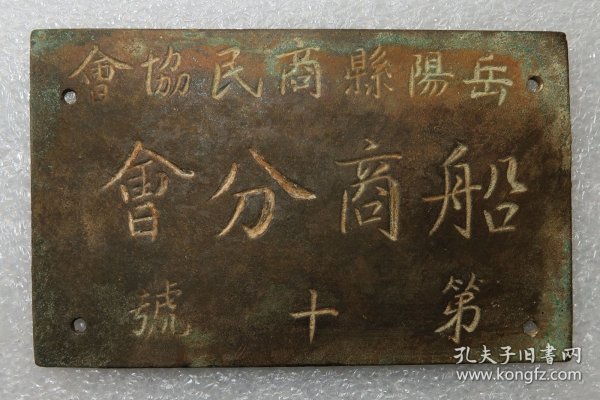 岳陽縣商民協會
船商分會
第十號
孔夫子旧书网
www.kongfz.com